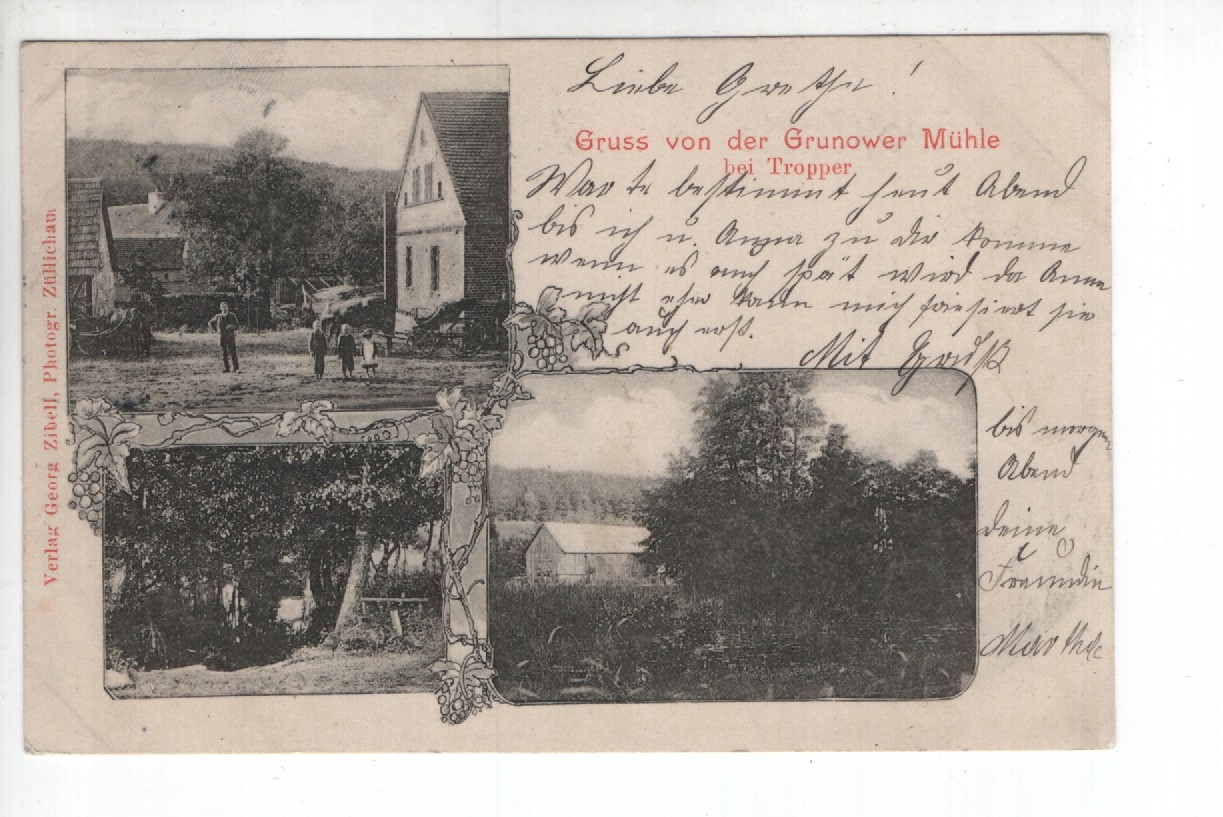 Liebe Grethe!
Gruss von der Grunower Mühle
bei Tropper
Warte bestimmt heut Abend
bis ich u. Anna zu dir komme
wenn es auch spät wird da Anna
nicht eher kann mich frisiert sie
auch erst.
Mit Gruß
bis morgen
Abend
deine
Freundin
Martha
Verlag Georg Zibell, Photogr. Züllichau.